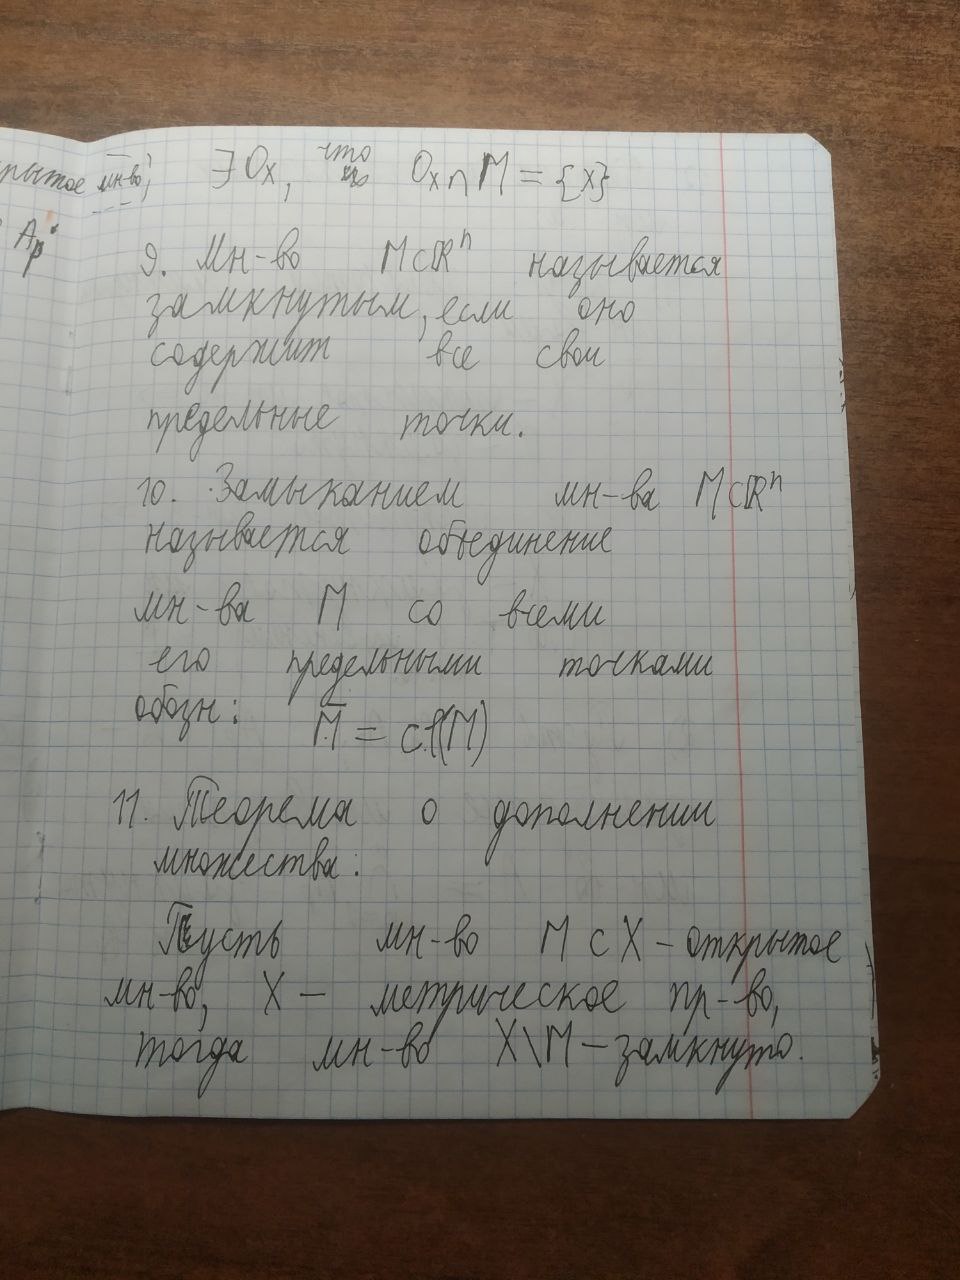 ∃ Ox, что Ox ∩ M = {x}
мн-во,
Ap
9. Мн-во M⊂ℝⁿ называется
замкнутым, если оно
содержит все свои
предельные точки.
10. Замыканием мн-ва M⊂ℝⁿ
называется объединение
мн-ва M со всеми
его предельными точками
обозн: M̅ = cl(M)
11. Теорема о дополнении
множества:
Пусть мн-во M ⊂ X – открытое
мн-во, X – метрическое пр-во,
тогда мн-во X\M – замкнуто.